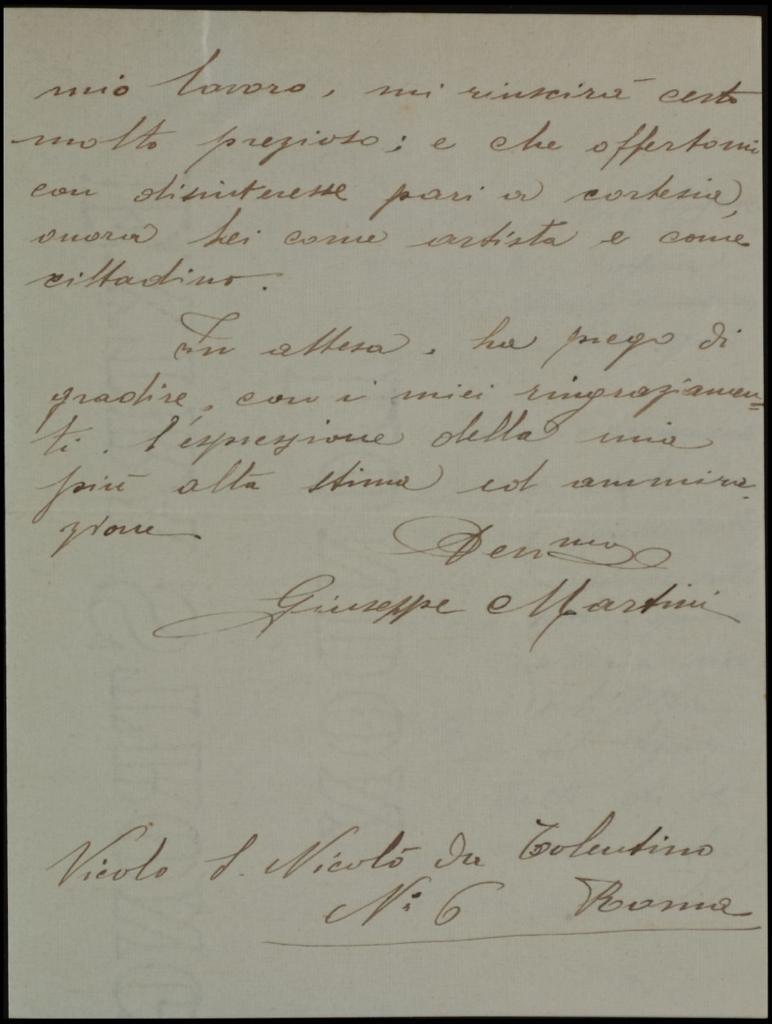 mio lavoro, mi riuscirà certo
molto prezioso; e che offertomi
con disinteresse pari a cortesia,
onora Lei come artista e come
cittadino.
In attesa, La prego di
gradire, con i miei ringraziamen=
ti, l'espressione della mia
più alta stima ed ammira-
zione
Dev mo
Giuseppe Martini
Vicolo S. Nicolò da Tolentino
N: 6 Roma